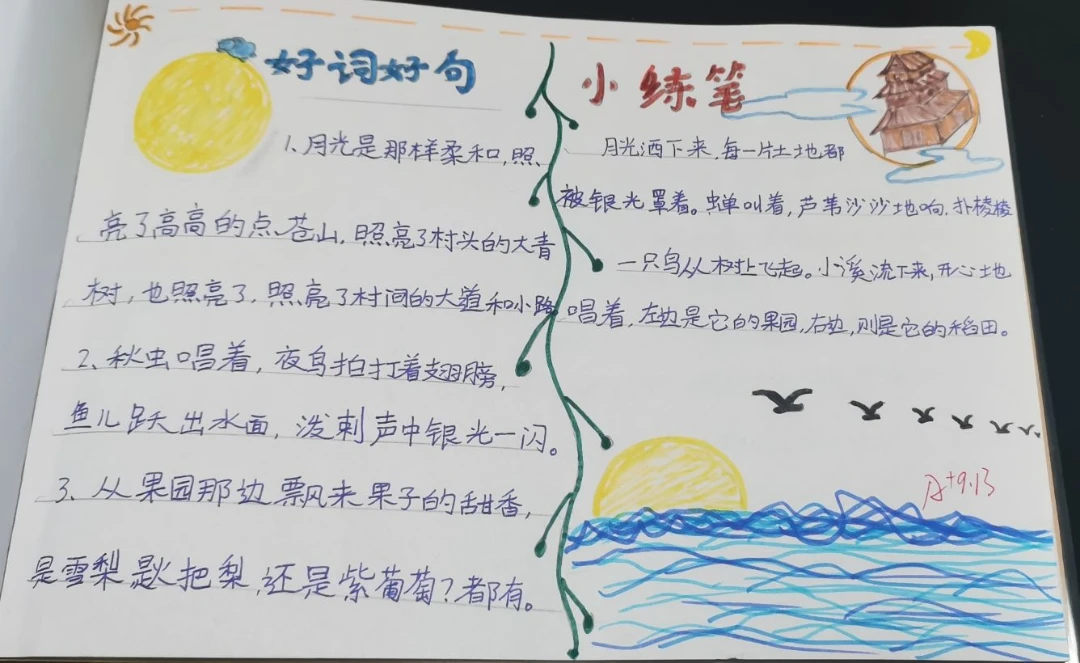 好词好句
1、月光是那样柔和,照
亮了高高的点苍山,照亮了村头的大青
树,也照亮了,照亮了村间的大道和小路
2、秋虫唱着,夜鸟拍打着翅膀,
鱼儿跃出水面,泼刺声中银光一闪。
3、从果园那边飘来果子的甜香,
是雪梨是火把梨,还是紫葡萄?都有。
小练笔
月光洒下来,每一片土地都
被银光罩着。蝉叫着,芦苇沙沙地响,扑棱棱
一只鸟从树上飞起。小溪流下来,开心地
唱着,左边是它的果园,右边,则是它的稻田。
A+9.13